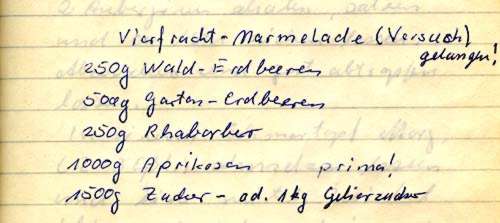 Vierfrucht-Marmelade (Versuch)
gelungen!
250g Wald-Erdbeeren
500g Garten-Erdbeeren
250g Rhabarber
1000g Aprikosen prima!
1500g Zucker - od. 1kg Gelierzucker